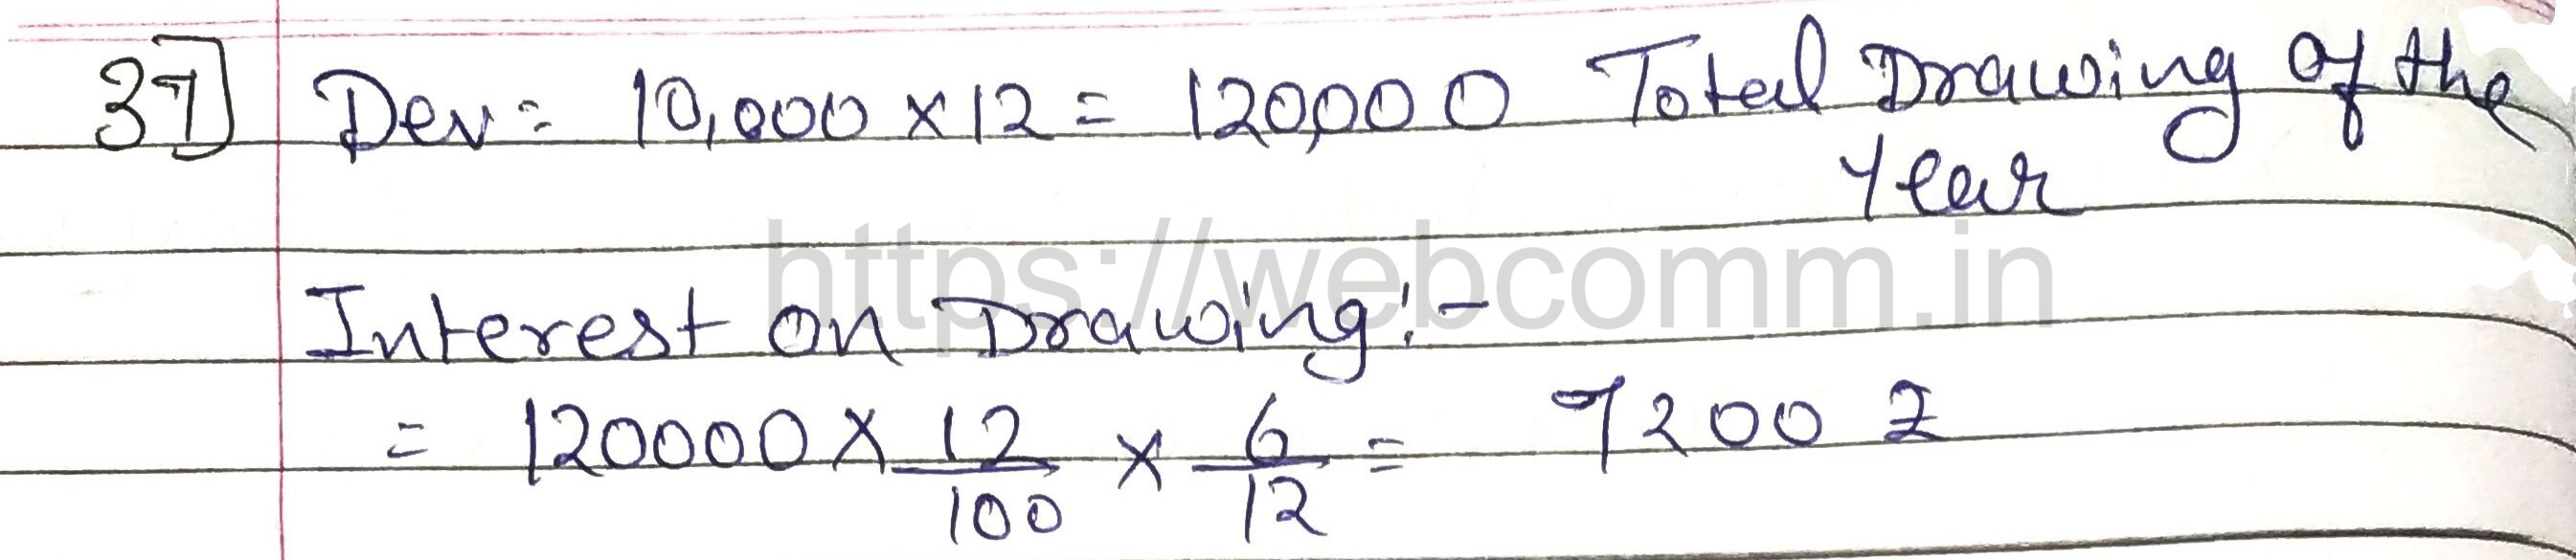 37] Dev = 10,000 × 12 = 120,000 Total Drawing of the
Year
https://webcomm.in
Interest on Drawing:-
= 120000 × 12/100 × 6/12 = 7200 ₹